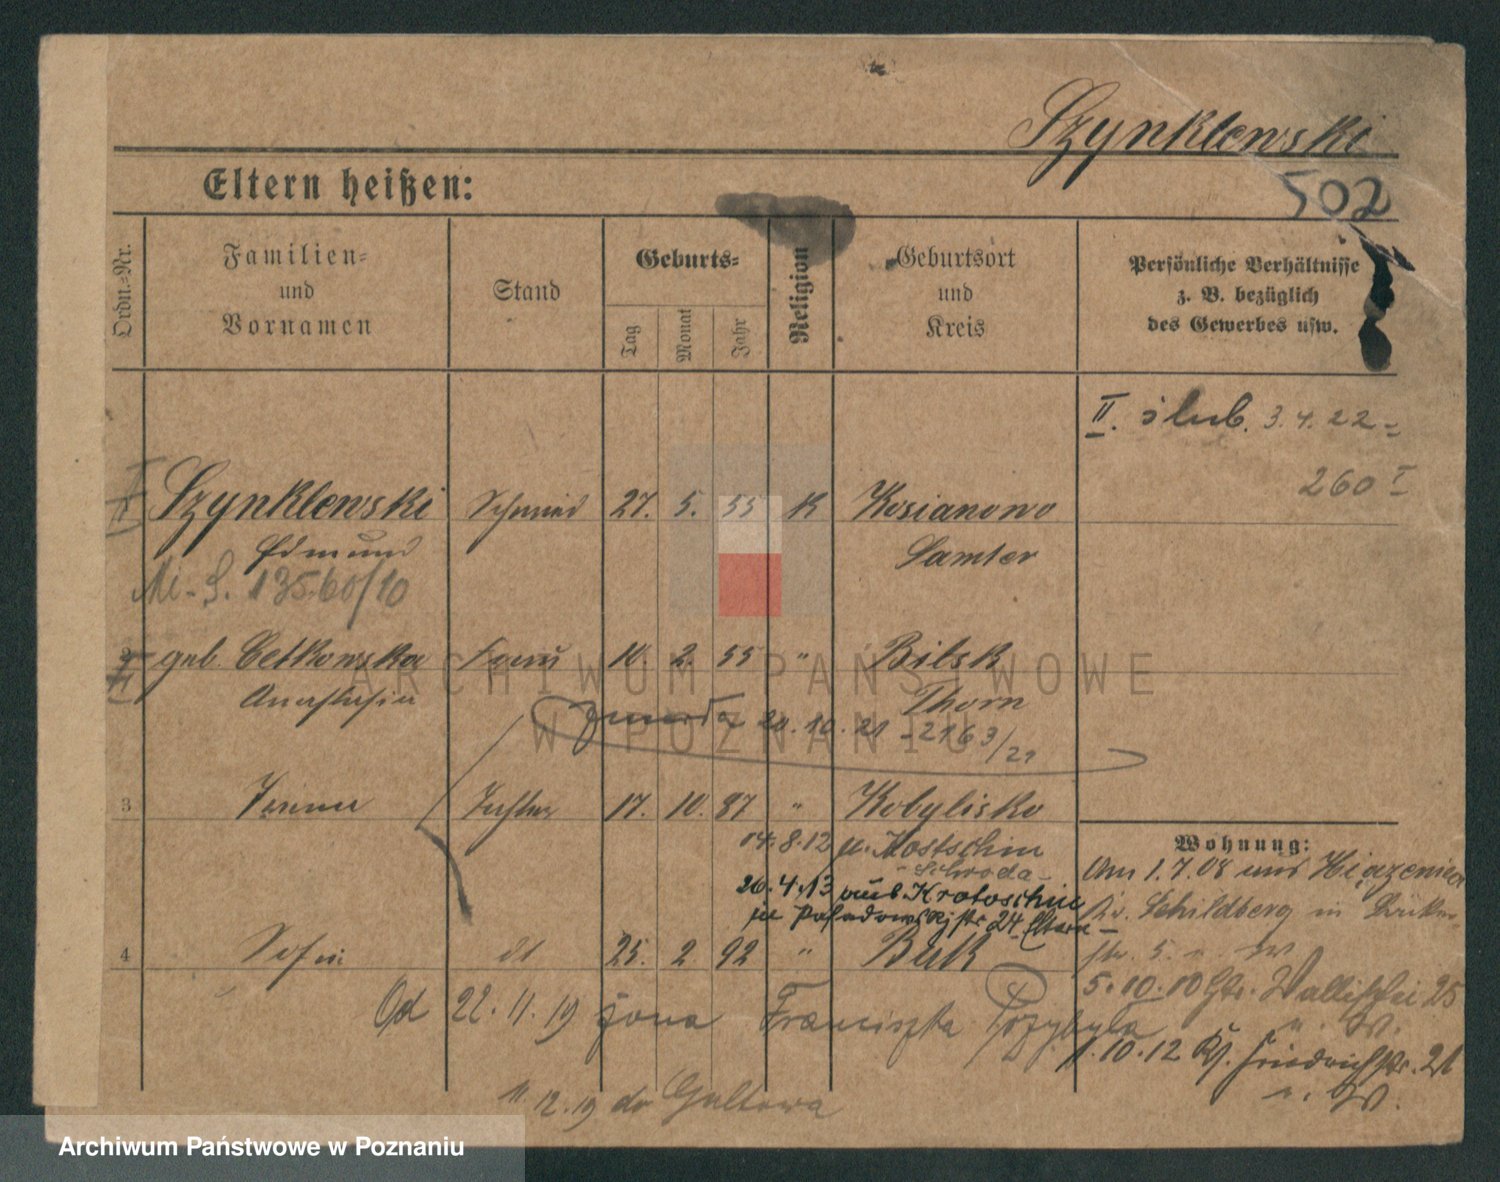 Szynklewski
502
Eltern heißen:
Ordn.-Nr.
Familien- und Vornamen
Stand
Geburts-
Tag
Monat
Jahr
Religion
Geburtsort und Kreis
Persönliche Verhältnisse z. B. bezüglich des Gewerbes usw.
II. ślub. 3.4.22 =
260 I
1 Szynklewski Schmied 27. 5. 55 K Kosianowo
Edmund Samter
135.60/10
2 geb. Cetkowska Frau 10. 2. 55 " Bilsk
Anastasia Thorn
zmarła 20.10.21 - 2163/21
3 Tochter 17. 10. 87 " Kobylisko
14.8.12 n. Kostschin
Schroda
26.4.13 aus Krotoschin
24 Eltern
4 Sofie dt 25. 2. 92 " Buk
Wohnung:
Am 1.7.08 aus
Kr. Schildberg in
5.
5.10.10 Gr. Wallischei 25
1.10.12 Friedrichstr. 26
Od 22.11.19 żona Franciszka Przybyła
11.12.19 do Gultowa
ARCHIWUM PAŃSTWOWE
W POZNANIU
Archiwum Państwowe w Poznaniu